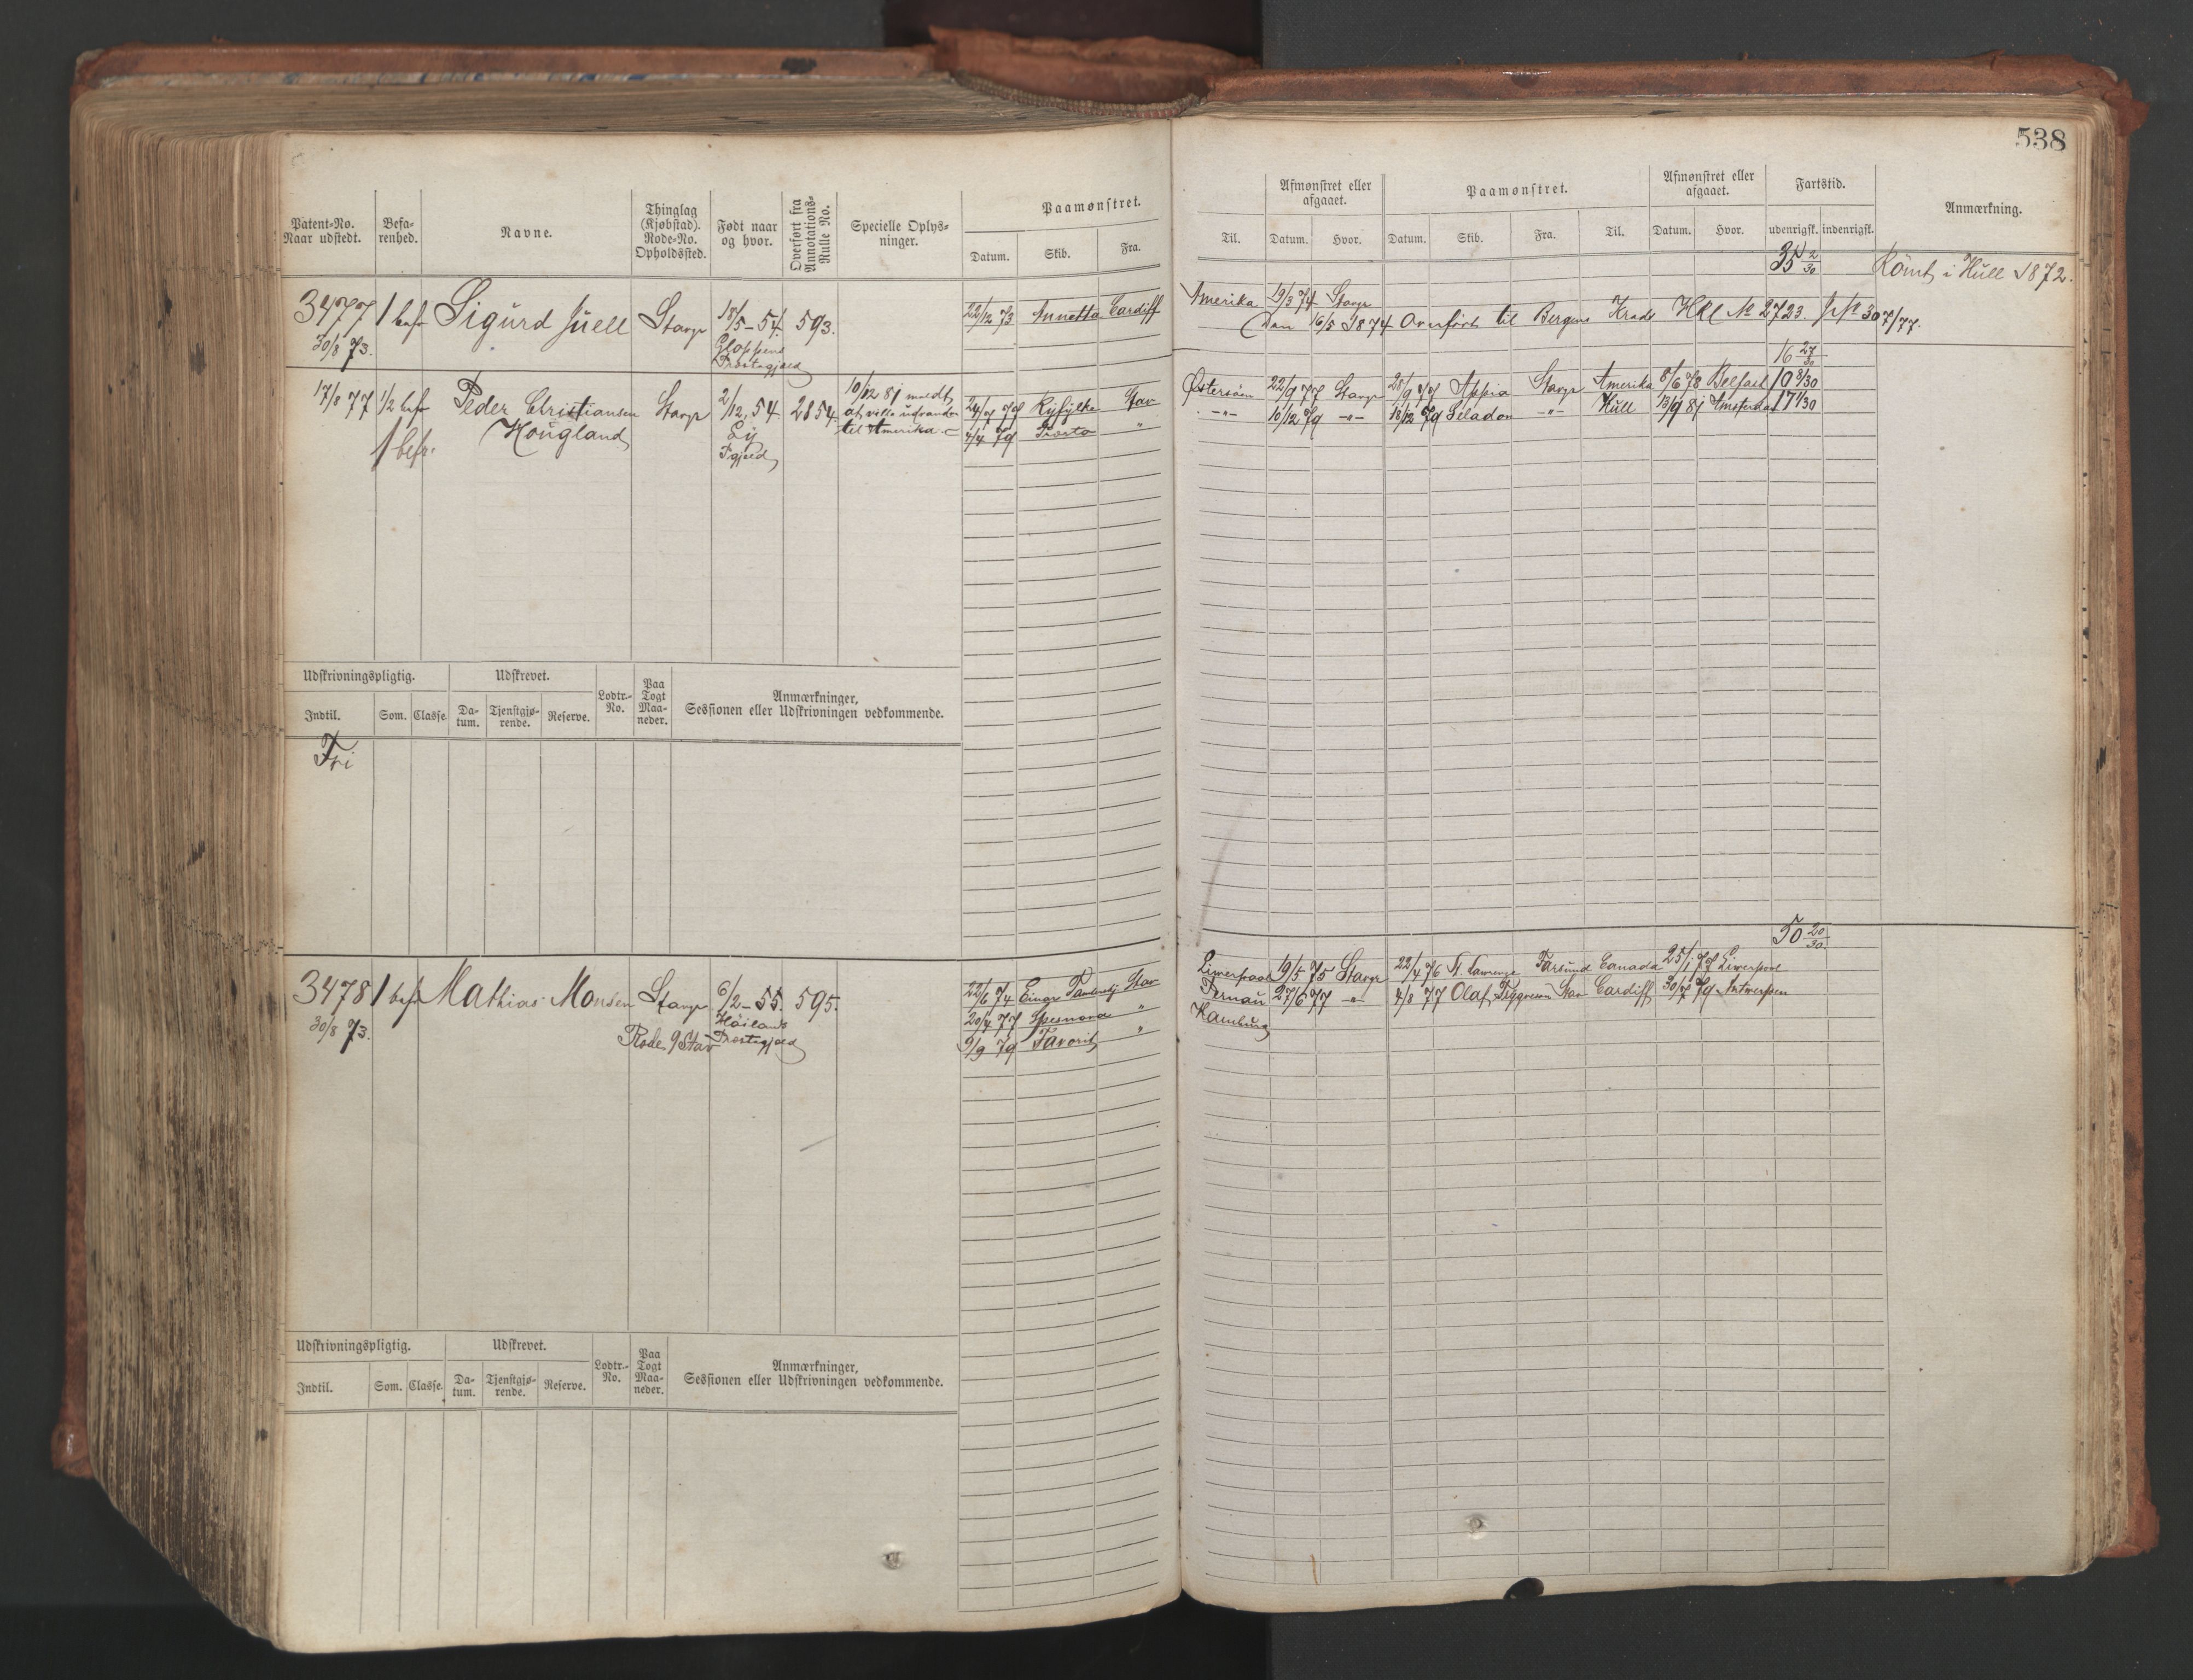 538
Patent-No. Naar udstedt.
Befarenhed.
Navne.
Thinglag (Kjøbstad). Rode-No. Opholdssted.
Født naar og hvor.
Overført fra Annotations-Rulle No.
Specielle Oplysninger.
Paamønstret.
Datum. Skib. Fra.
Til.
Afmønstret eller afgaaet.
Datum. Hvor.
Paamønstret.
Datum. Skib. Fra. Til.
Afmønstret eller afgaaet.
Datum. Hvor.
Fartstid.
udenrigsk. indenrigsk.
Anmærkning.
35 2/30 Römt i Hull 1872.
3477 1 bef Sigurd Juell Stavgr 18/5-54 593. 22/12 73 Annetta Cardiff Amerika 19/3 74 Stavgr
30/8 73. Gloppens Præstegjeld
Den 16/5 1874 Overført til Bergens Krads HRL No 2723. 307/77.
16 27/30
17/8 77 1/2 bef Peder Christiansen Stavgr 2/12, 54 2854. 10/12 81 meldt 24/7 77 Ryfylke Stav Østersöen 22/9 77 Stavgr 28/9 77 Appia Stavgr Amerika 8/6 78 Belfast 10 8/30
Hougland at ville udvandre 4/4 79 Proeto " -"- 10/12 79 -"- 18/12 79 Seladon -"- Hull 13/9 81 Amsterdam 17 1/30
1 befr. Ey til Amerika.
Pgjeld
Udskrivningspligtig. Udskrevet. Lodtr.-No. Paa Togt Maaneder. Anmærkninger, Sessionen eller Udskrivningen vedkommende.
Indtil. Som. Classe. Datum. Tjenstgjørende. Reserve.
Fri
50 20/30
3478 1 bef Mathias Monsen Stavgr 6/2-55. 595. 22/6 74 Einar Stav Liverpool 19/5 75 Stavgr 22/4 76 St. Lawrence Farsund Canada 25/1 77 Liverpool
30/8 73. Höilands 20/4 77 Spesnova " Pernau 27/6 77 -"- 4/8 77 Olaf Trygveson Stav Cardiff 30/7 79 Antwerpen
Rode 9 Stav Præstegjeld 9/9 79 Favorit " Hamburg
Udskrivningspligtig. Udskrevet. Lodtr.-No. Paa Togt Maaneder. Anmærkninger, Sessionen eller Udskrivningen vedkommende.
Indtil. Som. Classe. Datum. Tjenstgjørende. Reserve.